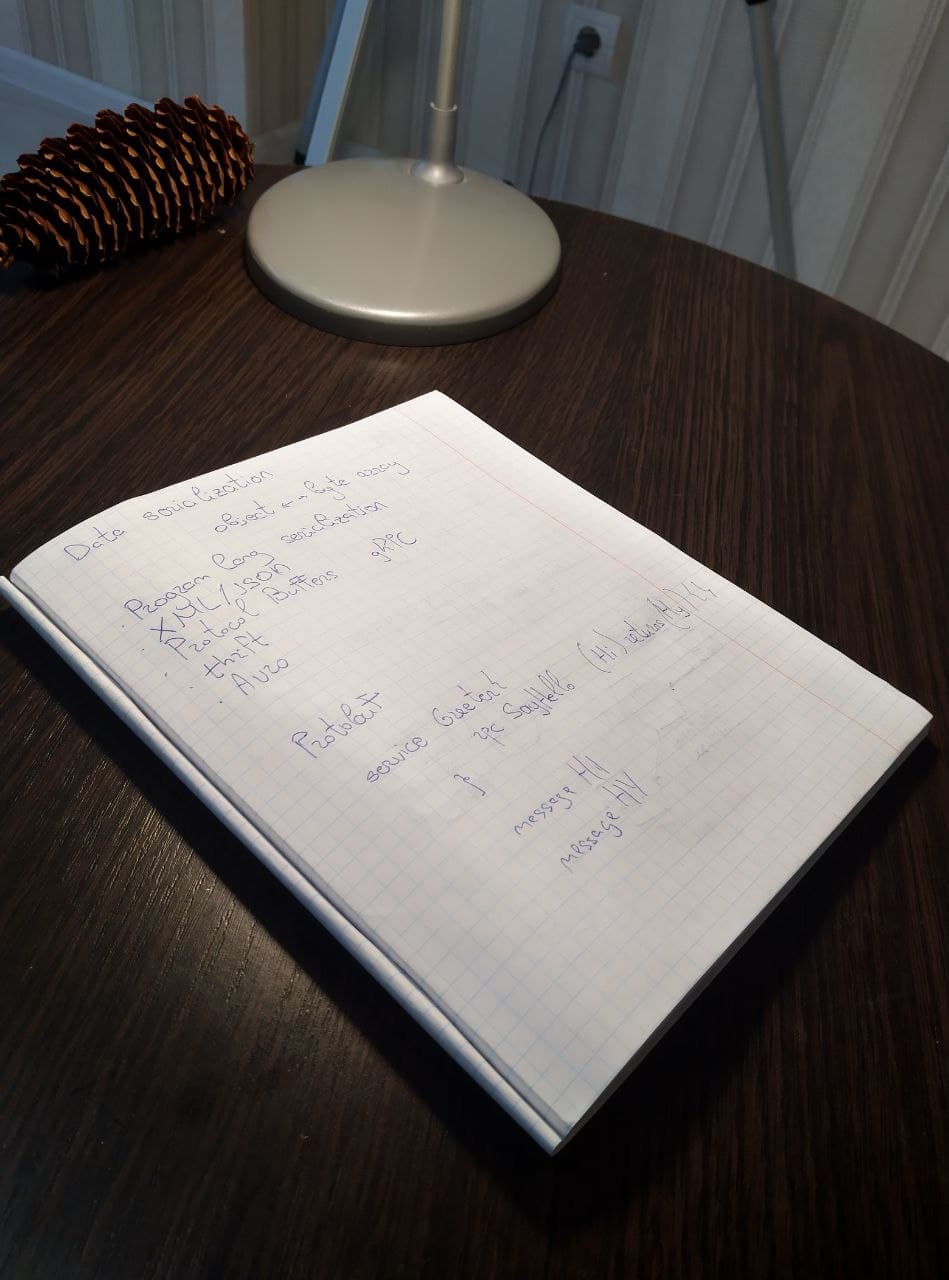 Data serialization
object <--> byte array
· Program lang serialization
· XML/JSON
· Protocol Buffers gRPC
· thrift
· Avro
Protobuf
service Greeter {
rpc SayHello (Hi) returns (Hy) {}
}
message Hi
message HY